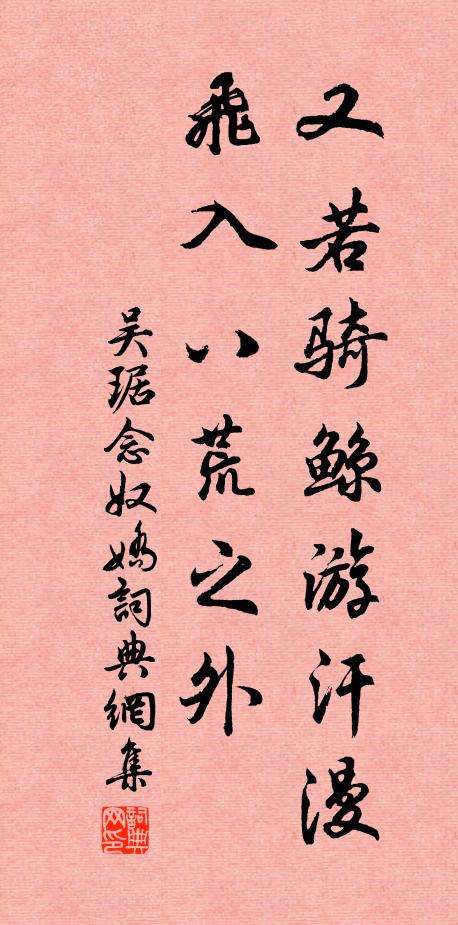 又若骑鲸游汗漫
飛入八荒之外
吴琚念奴嬌詞典網集
詞典網印